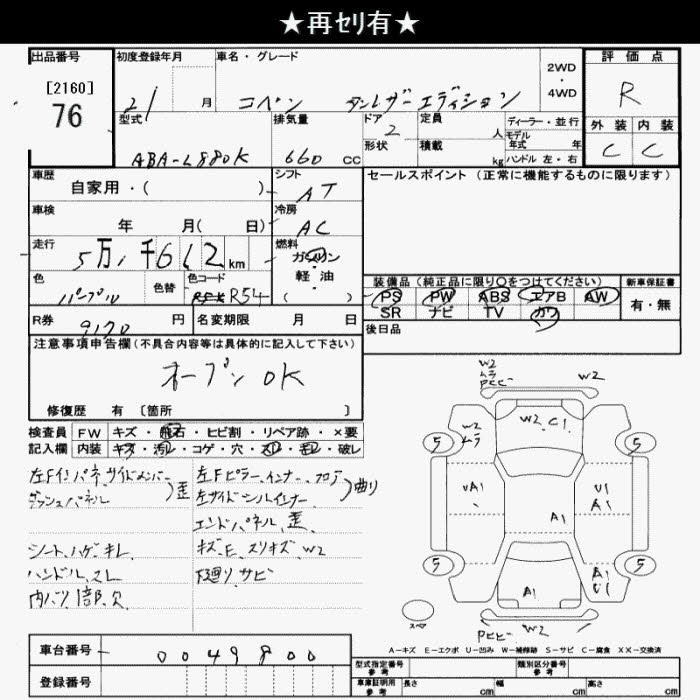 ★再セリ有★
出品番号 初度登録年月 車名・グレード 2WD・4WD 評価点
[2160]
76
21 月 コペン タンレザーエディション R
型式 排気量 ドア 2 形状 定員 人 積載 kg ディーラー・並行 モデル年式 年 ハンドル 左・右 外装 内装
ABA-L880K 660 CC C C
車歴 自家用・( ) シフト AT セールスポイント (正常に機能するものに限ります)
車検 年 月( 日) 冷房 AC
走行 5万1千612km 燃料 ガソリン・軽油
色 パープル 色替 色コード R54
装備品 (純正品に限り○をつけてください) 新車保証書
PS PW ABS エアB AW 有・無
SR ナビ TV カワ
R券 9170 円 名変期限 月 日 後日品
注意事項申告欄(不具合内容等は具体的に記入して下さい)
オープン OK
修復歴 有 〔箇所 〕
検査員 FW キズ・飛石・ヒビ割・リペア跡・×要
記入欄 内装 キズ・汚レ・コゲ・穴・スレ・毛レ・破レ
左Fインパネ、サイドメンバー
ダッシュパネル 歪
左Fピラー、インナー、フロア
左サイドシルインナー 曲り
エンドパネル、歪
シート、ハゲ、キレ
キズ、E、スリキズ、W2
ハンドル、スレ
下廻り、サビ
内バリ1部、欠
W2
ムラ
Pヒビ
W2
W2
ムラ
W2 C1
5
5
UA1
U1
A1
A1
5
5
A1
A1
U1
スペア
Pヒビ
W2
A-キズ E-エクボ U-凹み W-補修跡 S-サビ C-腐食 XX-交換済
車台番号 0049800
型式指定番号 参考 類別区分番号 参考
登録番号
車庫証明用 参考 長さ cm 幅 cm 高さ cm